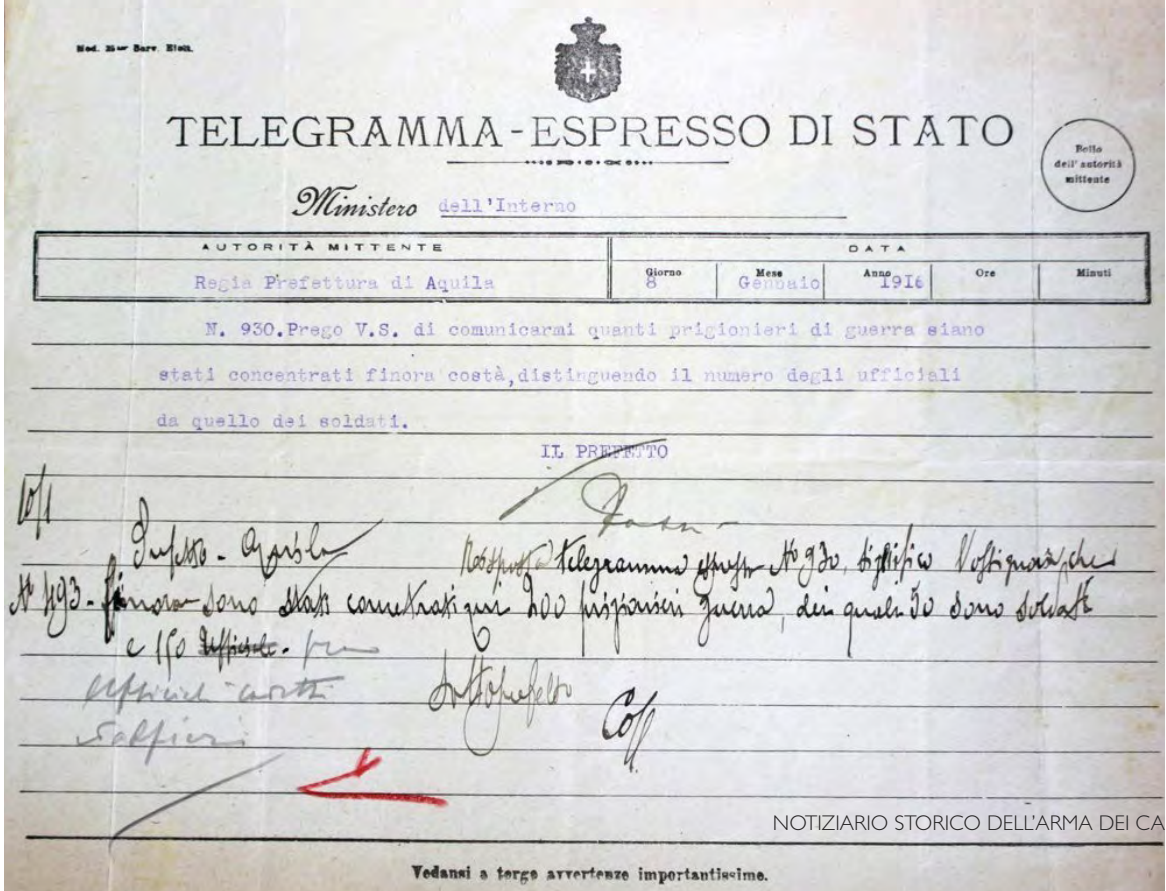 TELEGRAMMA-ESPRESSO DI STATO
Bollo
dell'autorità
mittente
Ministero dell'Interno
AUTORITÀ MITTENTE
DATA
Regia Prefettura di Aquila
Giorno
8
Mese
Gennaio
Anno
1916
Ore
Minuti
N. 930.Prego V.S. di comunicarmi quanti prigionieri di guerra siano
stati concentrati finora costà,distinguendo il numero degli ufficiali
da quello dei soldati.
IL PREFETTO
10/1
Prefetto - Aquila
Risposta telegramma N° 930, significo che
N° 493 - finora sono stati concentrati qui 200 prigionieri guerra, dei quali 50 sono soldati
e 150 Ufficiali.
Ufficiali
Sottoprefetto
NOTIZIARIO STORICO DELL'ARMA DEI CA
Vedansi a tergo avvertenze importantissime.